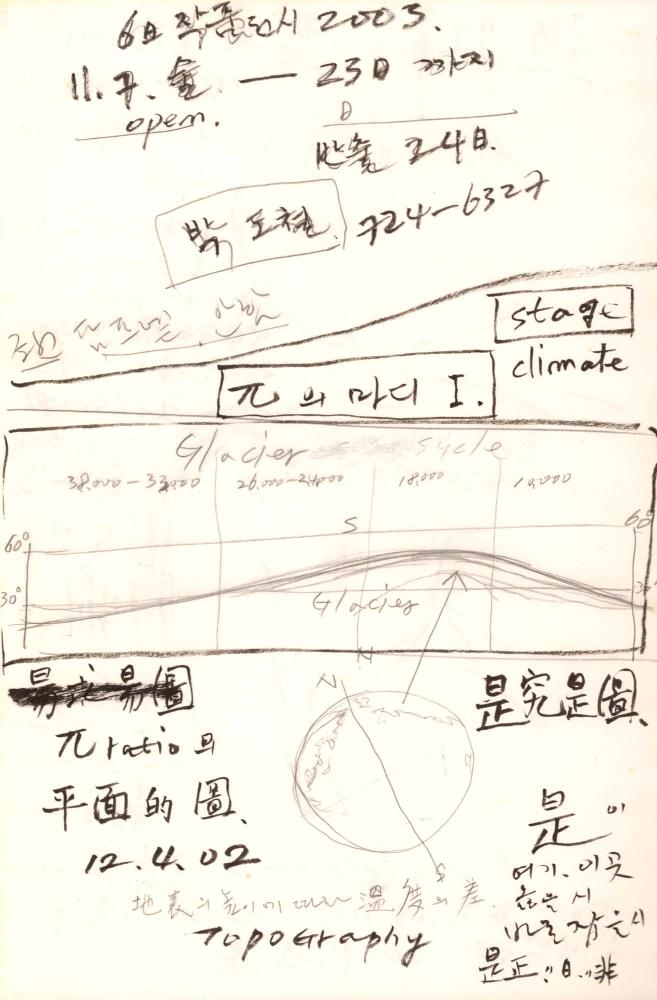 6日 작품전시 2003.
11. 7. 金. — 23日 까지
open.
24日.
박 도철. 724-6327
팜프렛
stage
climate
π 의 마디 I.
Glacier sycle
38,000-33,000 26,000-24,000 18,000 10,000
S
60° 60°
30°
Glacier
N
易 易圖
是究是圖.
π ratio의
平面的 圖.
12.4.02
N
S
是 이
여기. 이곳
옳을 시
바로잡을 시
是正 非
地表의 높이에 따라 溫度의 差.
TopoGraphy